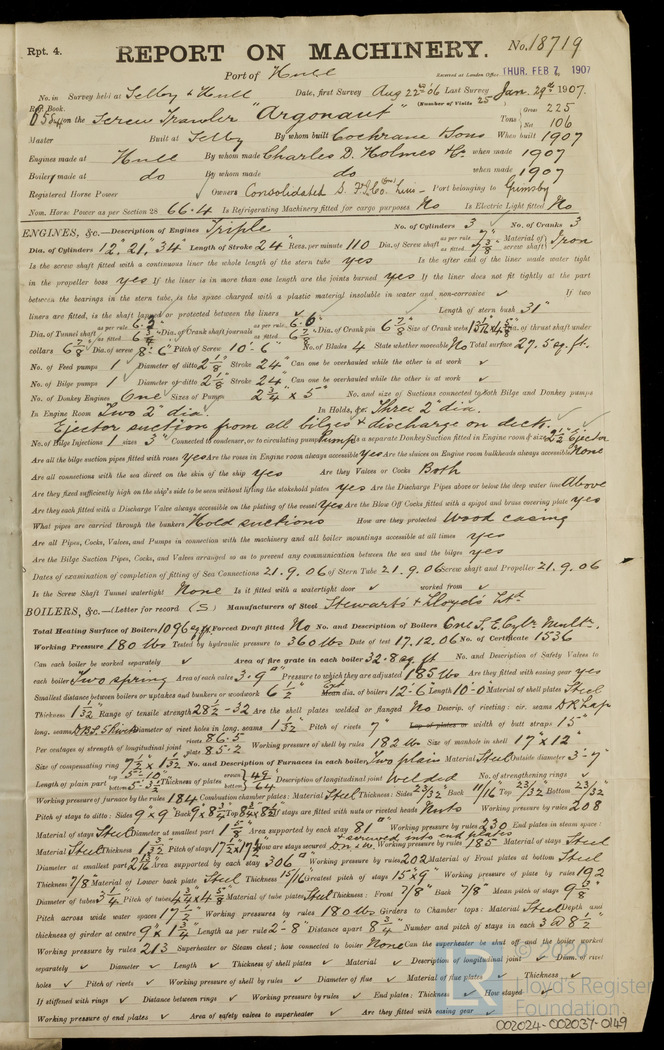 Rpt. 4.
REPORT ON MACHINERY. No. 18719
Port of Hull
Received at London Office THUR. FEB 7, 1907
No. in Survey held at Selby & Hull Date, first Survey Aug 22nd '06 Last Survey Jan. 29th 1907.
Book. (Number of Visits 25)
on the Screw Trawler "Argonaut" Tons Gross 225 Net 106
Master Built at Selby By whom built Cochrane & Sons When built 1907
Engines made at Hull By whom made Charles D. Holmes & Co when made 1907
Boilers made at do By whom made do when made 1907
Registered Horse Power Owners Consolidated S. F. & I. Co. (Gmy) Lim Port belonging to Grimsby
Nom. Horse Power as per Section 28 66.4 Is Refrigerating Machinery fitted for cargo purposes No Is Electric Light fitted No
ENGINES, &c.—Description of Engines Triple No. of Cylinders 3 No. of Cranks 3
Dia. of Cylinders 12", 21", 34" Length of Stroke 24" Revs. per minute 110 Dia. of Screw shaft as per rule 7" as fitted 7 3/8 Material of screw shaft Iron
Is the screw shaft fitted with a continuous liner the whole length of the stern tube yes Is the after end of the liner made water tight
in the propeller boss yes If the liner is in more than one length are the joints burned yes If the liner does not fit tightly at the part
between the bearings in the stern tube, is the space charged with a plastic material insoluble in water and non-corrosive ✓ If two
liners are fitted, is the shaft lapped or protected between the liners ✓ Length of stern bush 31"
Dia. of Tunnel shaft as per rule as fitted Dia. of Crank shaft journals as per rule as fitted 6 7/8 Dia. of Crank pin 6 7/8 Size of Crank webs 13 1/2 x 4 5/8 Dia. of thrust shaft under
collars 6 7/8 Dia. of screw 8'-6" Pitch of Screw 10'-6" No. of Blades 4 State whether moveable No Total surface 27.5 sq. ft.
No. of Feed pumps 1 Diameter of ditto 2 1/8 Stroke 24" Can one be overhauled while the other is at work ✓
No. of Bilge pumps 1 Diameter of ditto 2 1/8 Stroke 24" Can one be overhauled while the other is at work ✓
No. of Donkey Engines One Sizes of Pumps 2 3/4 x 5" No. and size of Suctions connected to both Bilge and Donkey pumps
In Engine Room Two 2" dia. In Holds, &c. Three 2" dia.
Ejector suction from all bilges & discharge on deck.
No. of Bilge Injections 1 sizes 3" Connected to condenser, or to circulating pump Pump Is a separate Donkey Suction fitted in Engine room & size 2 1/2" Ejector
Are all the bilge suction pipes fitted with roses yes Are the roses in Engine room always accessible yes Are the sluices on Engine room bulkheads always accessible None
Are all connections with the sea direct on the skin of the ship yes Are they Valves or Cocks Both
Are they fixed sufficiently high on the ship's side to be seen without lifting the stokehold plates yes Are the Discharge Pipes above or below the deep water line Above
Are they each fitted with a Discharge Valve always accessible on the plating of the vessel Yes Are the Blow Off Cocks fitted with a spigot and brass covering plate yes
What pipes are carried through the bunkers Hold suctions How are they protected Wood casing
Are all Pipes, Cocks, Valves, and Pumps in connection with the machinery and all boiler mountings accessible at all times yes
Are the Bilge Suction Pipes, Cocks, and Valves arranged so as to prevent any communication between the sea and the bilges yes
Dates of examination of completion of fitting of Sea Connections 21.9.06 of Stern Tube 21.9.06 Screw shaft and Propeller 21.9.06
Is the Screw Shaft Tunnel watertight None Is it fitted with a watertight door ✓ worked from ✓
BOILERS, &c.—(Letter for record (S) Manufacturers of Steel Stewarts & Lloyds Ltd.
Total Heating Surface of Boilers 1096 sq ft Forced Draft fitted No No. and Description of Boilers One S. E. Cylr. Mult.
Working Pressure 180 lbs Tested by hydraulic pressure to 360 lbs Date of test 17.12.06 No. of Certificate 1536
Can each boiler be worked separately ✓ Area of fire grate in each boiler 32.8 sq. ft No. and Description of Safety Valves to
each boiler Two spring Area of each valve 3.9 Pressure to which they are adjusted 185 lbs Are they fitted with easing gear yes
Smallest distance between boilers or uptakes and bunkers or woodwork 6 1/2" Mean dia. of boilers 12'-6" Length 10'-0 Material of shell plates Steel
Thickness 1 1/32 Range of tensile strength 28 1/2-32 Are the shell plates welded or flanged No Descrip. of riveting: cir. seams DR Lap
long. seams D.B.S. 5 Rivets Diameter of rivet holes in long. seams 1 1/32 Pitch of rivets 7" Lap of plates or width of butt straps 15"
Per centages of strength of longitudinal joint rivets 86.5 plate 85.2 Working pressure of shell by rules 182 lbs Size of manhole in shell 17" x 12"
Size of compensating ring 7 1/2 x 1 1/32 No. and Description of Furnaces in each boiler Two plain Material Steel Outside diameter 3'-7"
Length of plain part top 5'-10" bottom Thickness of plates crown bottom 49/64 Description of longitudinal joint Welded No. of strengthening rings ✓
Working pressure of furnace by the rules 184 Combustion chamber plates: Material Steel Thickness: Sides 23/32 Back 11/16 Top 23/32 Bottom 23/32
Pitch of stays to ditto: Sides 9 x 9 Back 9 x 8 3/4 Top If stays are fitted with nuts or riveted heads Nuts Working pressure by rules 208
Material of stays Steel Diameter at smallest part 1 5/8 Area supported by each stay 81 Working pressure by rules 230 End plates in steam space:
Material Steel Thickness 1 3/32 Pitch of stays 17 1/2 x 17 1/2 How are stays secured D.n & w. & screwed into end plates Working pressure by rules 185 Material of stays Steel
Diameter at smallest part Area supported by each stay 306 Working pressure by rules 202 Material of Front plates at bottom Steel
Thickness 7/8" Material of Lower back plate Steel Thickness 15/16 Greatest pitch of stays 15 x 9" Working pressure of plate by rules 192
Diameter of tubes 3 1/4 Pitch of tubes 4 3/4 x 4 5/8 Material of tube plates Steel Thickness: Front 7/8" Back 7/8" Mean pitch of stays
Pitch across wide water spaces 17 1/2" Working pressures by rules 180 lbs Girders to Chamber tops: Material Steel Depth and
thickness of girder at centre 9" x 1 3/4 Length as per rule 2'-8" Distance apart 8 3/4" Number and pitch of stays in each 3 @ 8 1/2"
Working pressure by rules 213 Superheater or Steam chest; how connected to boiler None Can the superheater be shut off and the boiler worked
separately ✓ Diameter ✓ Length ✓ Thickness of shell plates ✓ Material ✓ Description of longitudinal joint ✓ Diam. of rivet
holes ✓ Pitch of rivets ✓ Working pressure of shell by rules ✓ Diameter of flue ✓ Material of flue plates ✓ Thickness ✓
If stiffened with rings ✓ Distance between rings ✓ Working pressure by rules ✓ End plates: Thickness ✓ How stayed ✓
Working pressure of end plates ✓ Area of safety valves to superheater ✓ Are they fitted with easing gear ✓
© 2020
Lloyd's Register
Foundation
002024-002037-0149